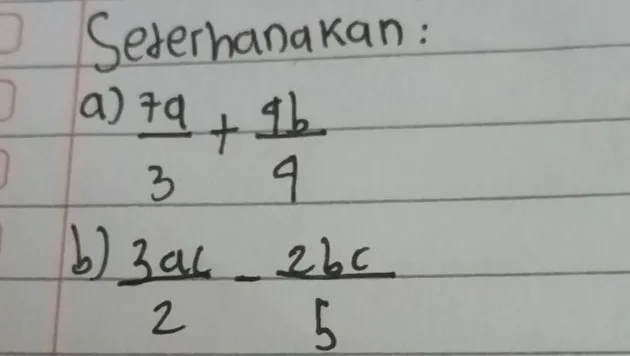 Sederhanakan:
a) 7a/3 + 9b/4
b) 3ac/2 - 2bc/5